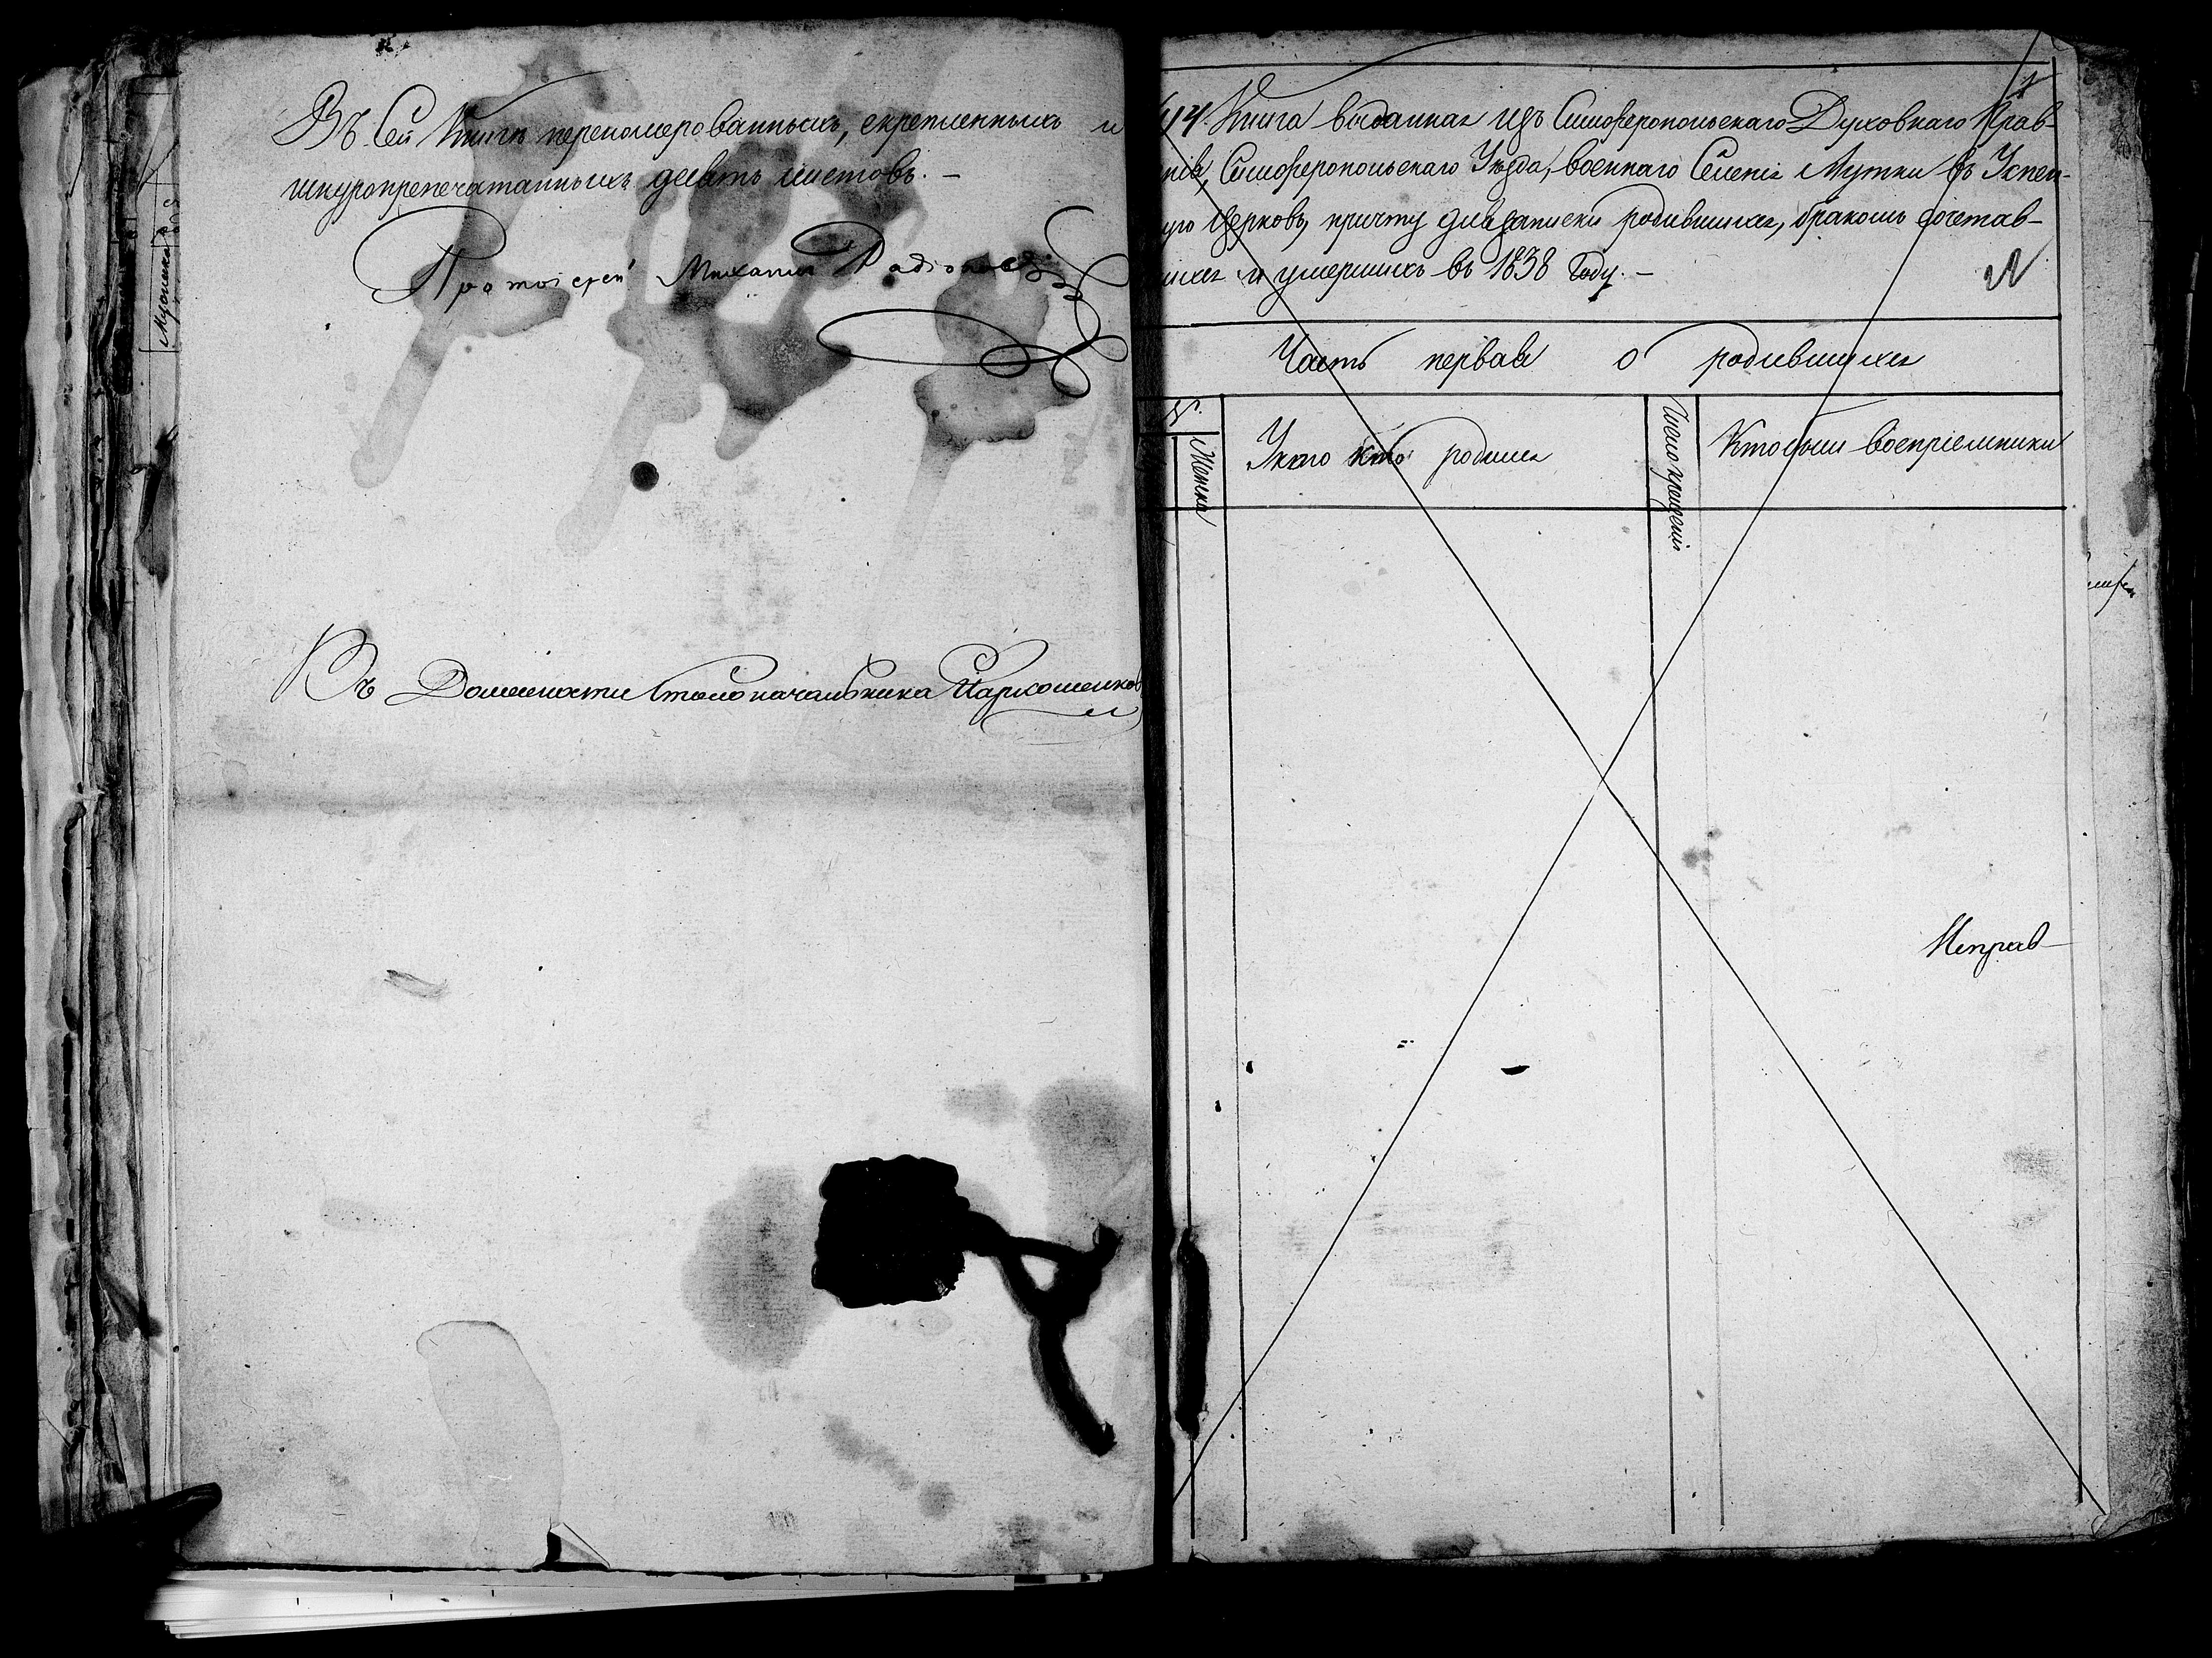 Въ Сей Книгѣ перепомерованныхъ, скрепленныхъ и
шнуропрепечатанныхъ девять листовъ. –
Протоіерей Михаилъ Радіоновъ
Въ Должности Столоначальника
1
414. Книга выданная изъ Симферопольскаго Духовнаго Прав-
нія, Симферопольскаго Уѣзда, военнаго Селенія Мутки въ Успен-
ую Церковь, причту для записки родившихся, бракомъ сочетав-
шихся и умершихъ въ 1838 Году. –
Часть первая о родившихся
№
Женска
У кого кто родился
Число крещенія
Кто были воспріемники
Неправ-